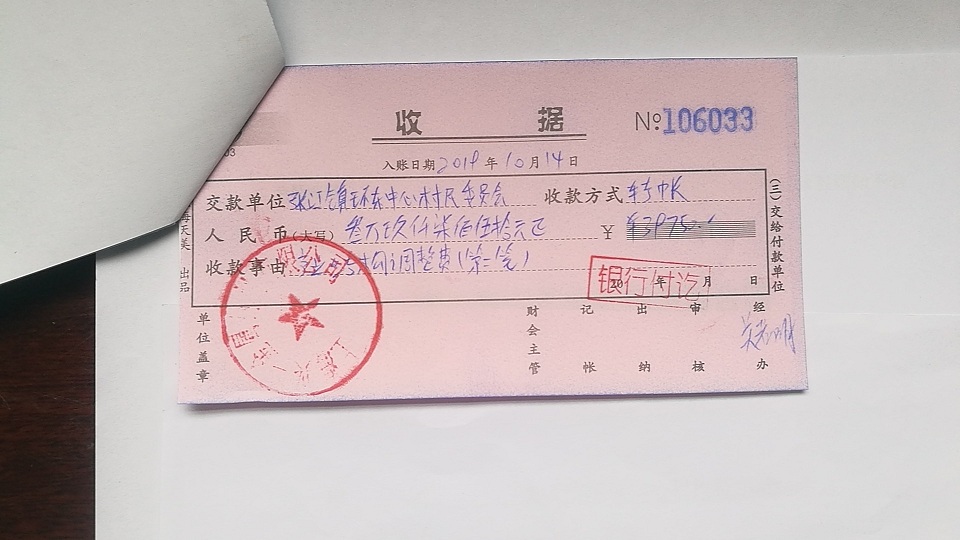 收 据
№106033
入账日期2019年10月14日
交款单位张江镇环东中心村民委员会 收款方式转帐
人民币(大写)叁万玖仟柒佰伍拾元正 ¥ 
收款事由 结构调整费(第一笔)
银行付讫
年 月 日
(三)交给付款单位
海天美 出品
单位盖章
财会主管
记帐
出纳
审核
经办